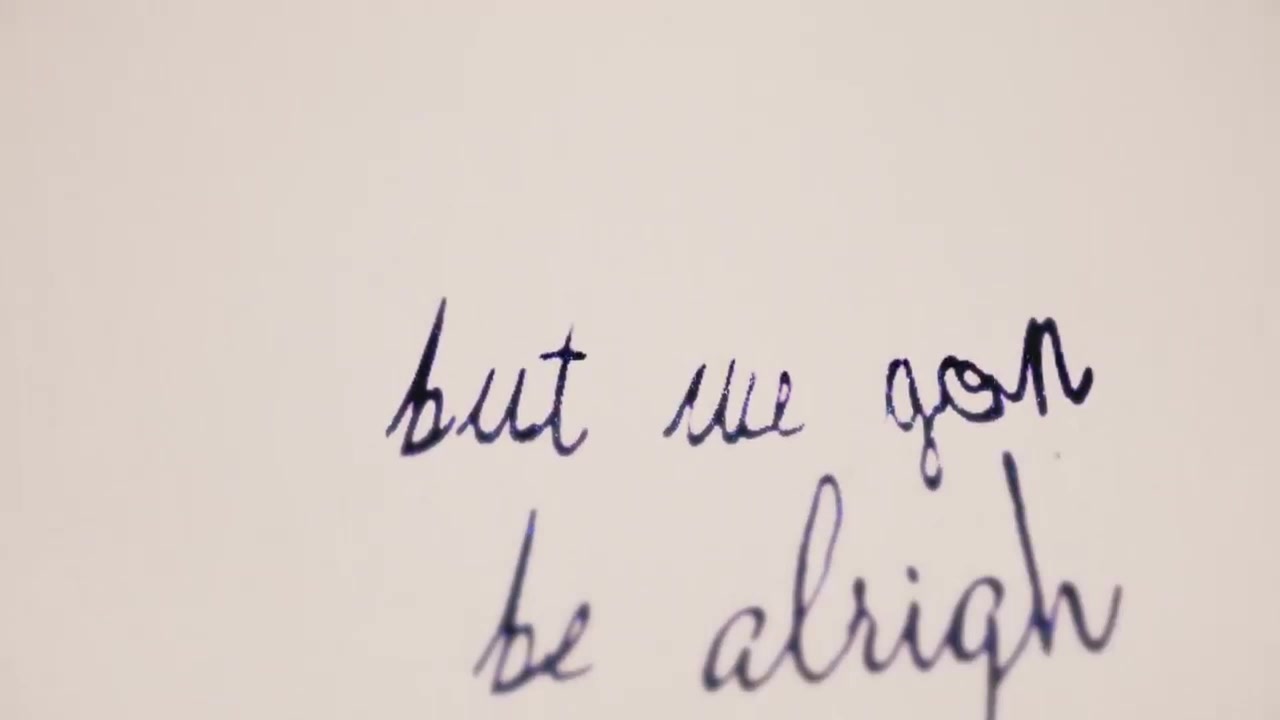 but we gon
be alrigh